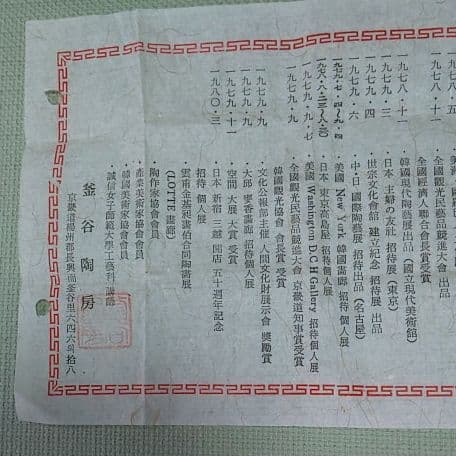 一九七八・五
一九七八・十一 全國觀光民藝品競進大會 出品
全國經濟人聯合會長賞 受賞
一九七八・十一 韓國現代陶藝展 出品 (國立現代美術館)
一九七九・三 日本 主婦の友社 招待展 (東京)
一九七九・四 世宗文化會館 建立紀念 招待展 出品
一九七九・六 中・日 國際陶藝展 招待出品 (名古屋)
美國 New York 韓國畵廊 招待 個人展
日本 東京高島屋 招待 個人展
一九七九・七 美國 Washington D.C H Gallery 招待個人展
一九七九・九 全國觀光民藝品競進大會 京畿道知事賞受賞
韓國觀光協會 會長賞 受賞
一九七九・九 文化公報部主催 人間文化財展示會 奬勵賞
一九七九・九 大邱 麥香畵廊 招待個人展
一九七九・十一 空間 大展 大賞 受賞
一九八〇・三 日本 新宿 三越 開店 五十週年 記念
招待 個人展
雲甫金基昶畵伯合同陶畵展
(LOTTE 畵廊)
陶作家協會會員
產業美術家協會會員
韓國美術家協會會員
誠信女子師範大學工藝科講師
釜谷陶房
京畿道楊州郡長興面釜谷里六四六의拾八